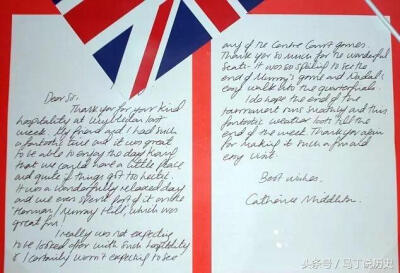 Dear Sir,
Thank you for your kind
hospitality at Wimbledon last
week. My friend and I had such
a fantastic time and it was great
to be able to enjoy the day knowing
that we could have a little peace
and quiet if things got too hectic.
It was a wonderfully relaxed day
and we even spent part of it on the
'Henman/Murray Hill', which was
great fun!
I really was not expecting
to be looked after with such hospitality
& I certainly wasn't expecting to see
any of the Centre Court games.
Thank you so much for the wonderful
seats. It was so exciting to see the
end of Murray's game and Nadal's
easy walk into the quarterfinals.
I do hope the end of the
tournament runs smoothly and this
fantastic weather lasts till the
end of the week. Thank you again
for making it such a fun and
easy visit.
Best wishes,
Catherine Middleton
头条号 / 马丁说历史